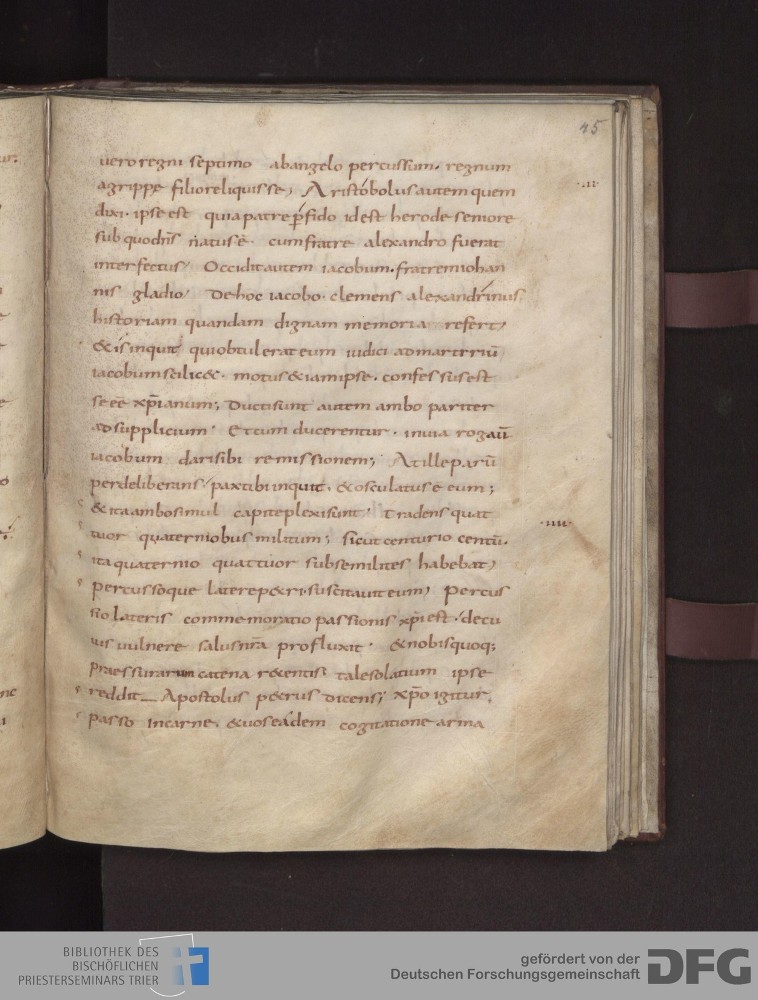 45
uero regni septimo ab angelo percussum. regnum
agrippę filio reliquisse; Aristóbolus autem quem
dixi. ipse est quia patre ꝑfido id est herode seniore
sub quo dn̄s natus ē. cum fratre alexandro fuerat
interfectus; Occidit autem iacobum. fratrem iohan
nis gladio; De hoc iacobo. clemens alexandrinus
historiam quandam dignam memoria refert;
& is inquit qui obtulerat eum iudici ad martyriū
iacobum scilic&. motus & iam ipse. confessus est
se eē xp̄ianum; Ducti sunt autem ambo pariter
ad supplicium. Et cum ducerentur. in uia rogauit
iacobum dari sibi remissionem; At ille parū
per deliberans pax tibi inquit. & osculatus ē eum;
& ita ambo simul capite plexi sunt. Tradens quat
tuor quaternionibus militum; sicut centurio centū.
ita quaternio quattuor sub se milites habebat;
percussoque latere p&ri. suscitauit eum; Percus
sio lateris commemoratio passionis xp̄i est. de cu
ius uulnere salus nr̄a profluxit. & nobis quoq;
praessurarum catena r&entis tale solatium ipse
reddit Apostolus p&rus dicens; xp̄o igitur
passo in carne. & uos eádem cogitatione arma
BIBLIOTHEK DES
BISCHÖFLICHEN
PRIESTERSEMINARS TRIER
gefördert von der
Deutschen Forschungsgemeinschaft
DFG